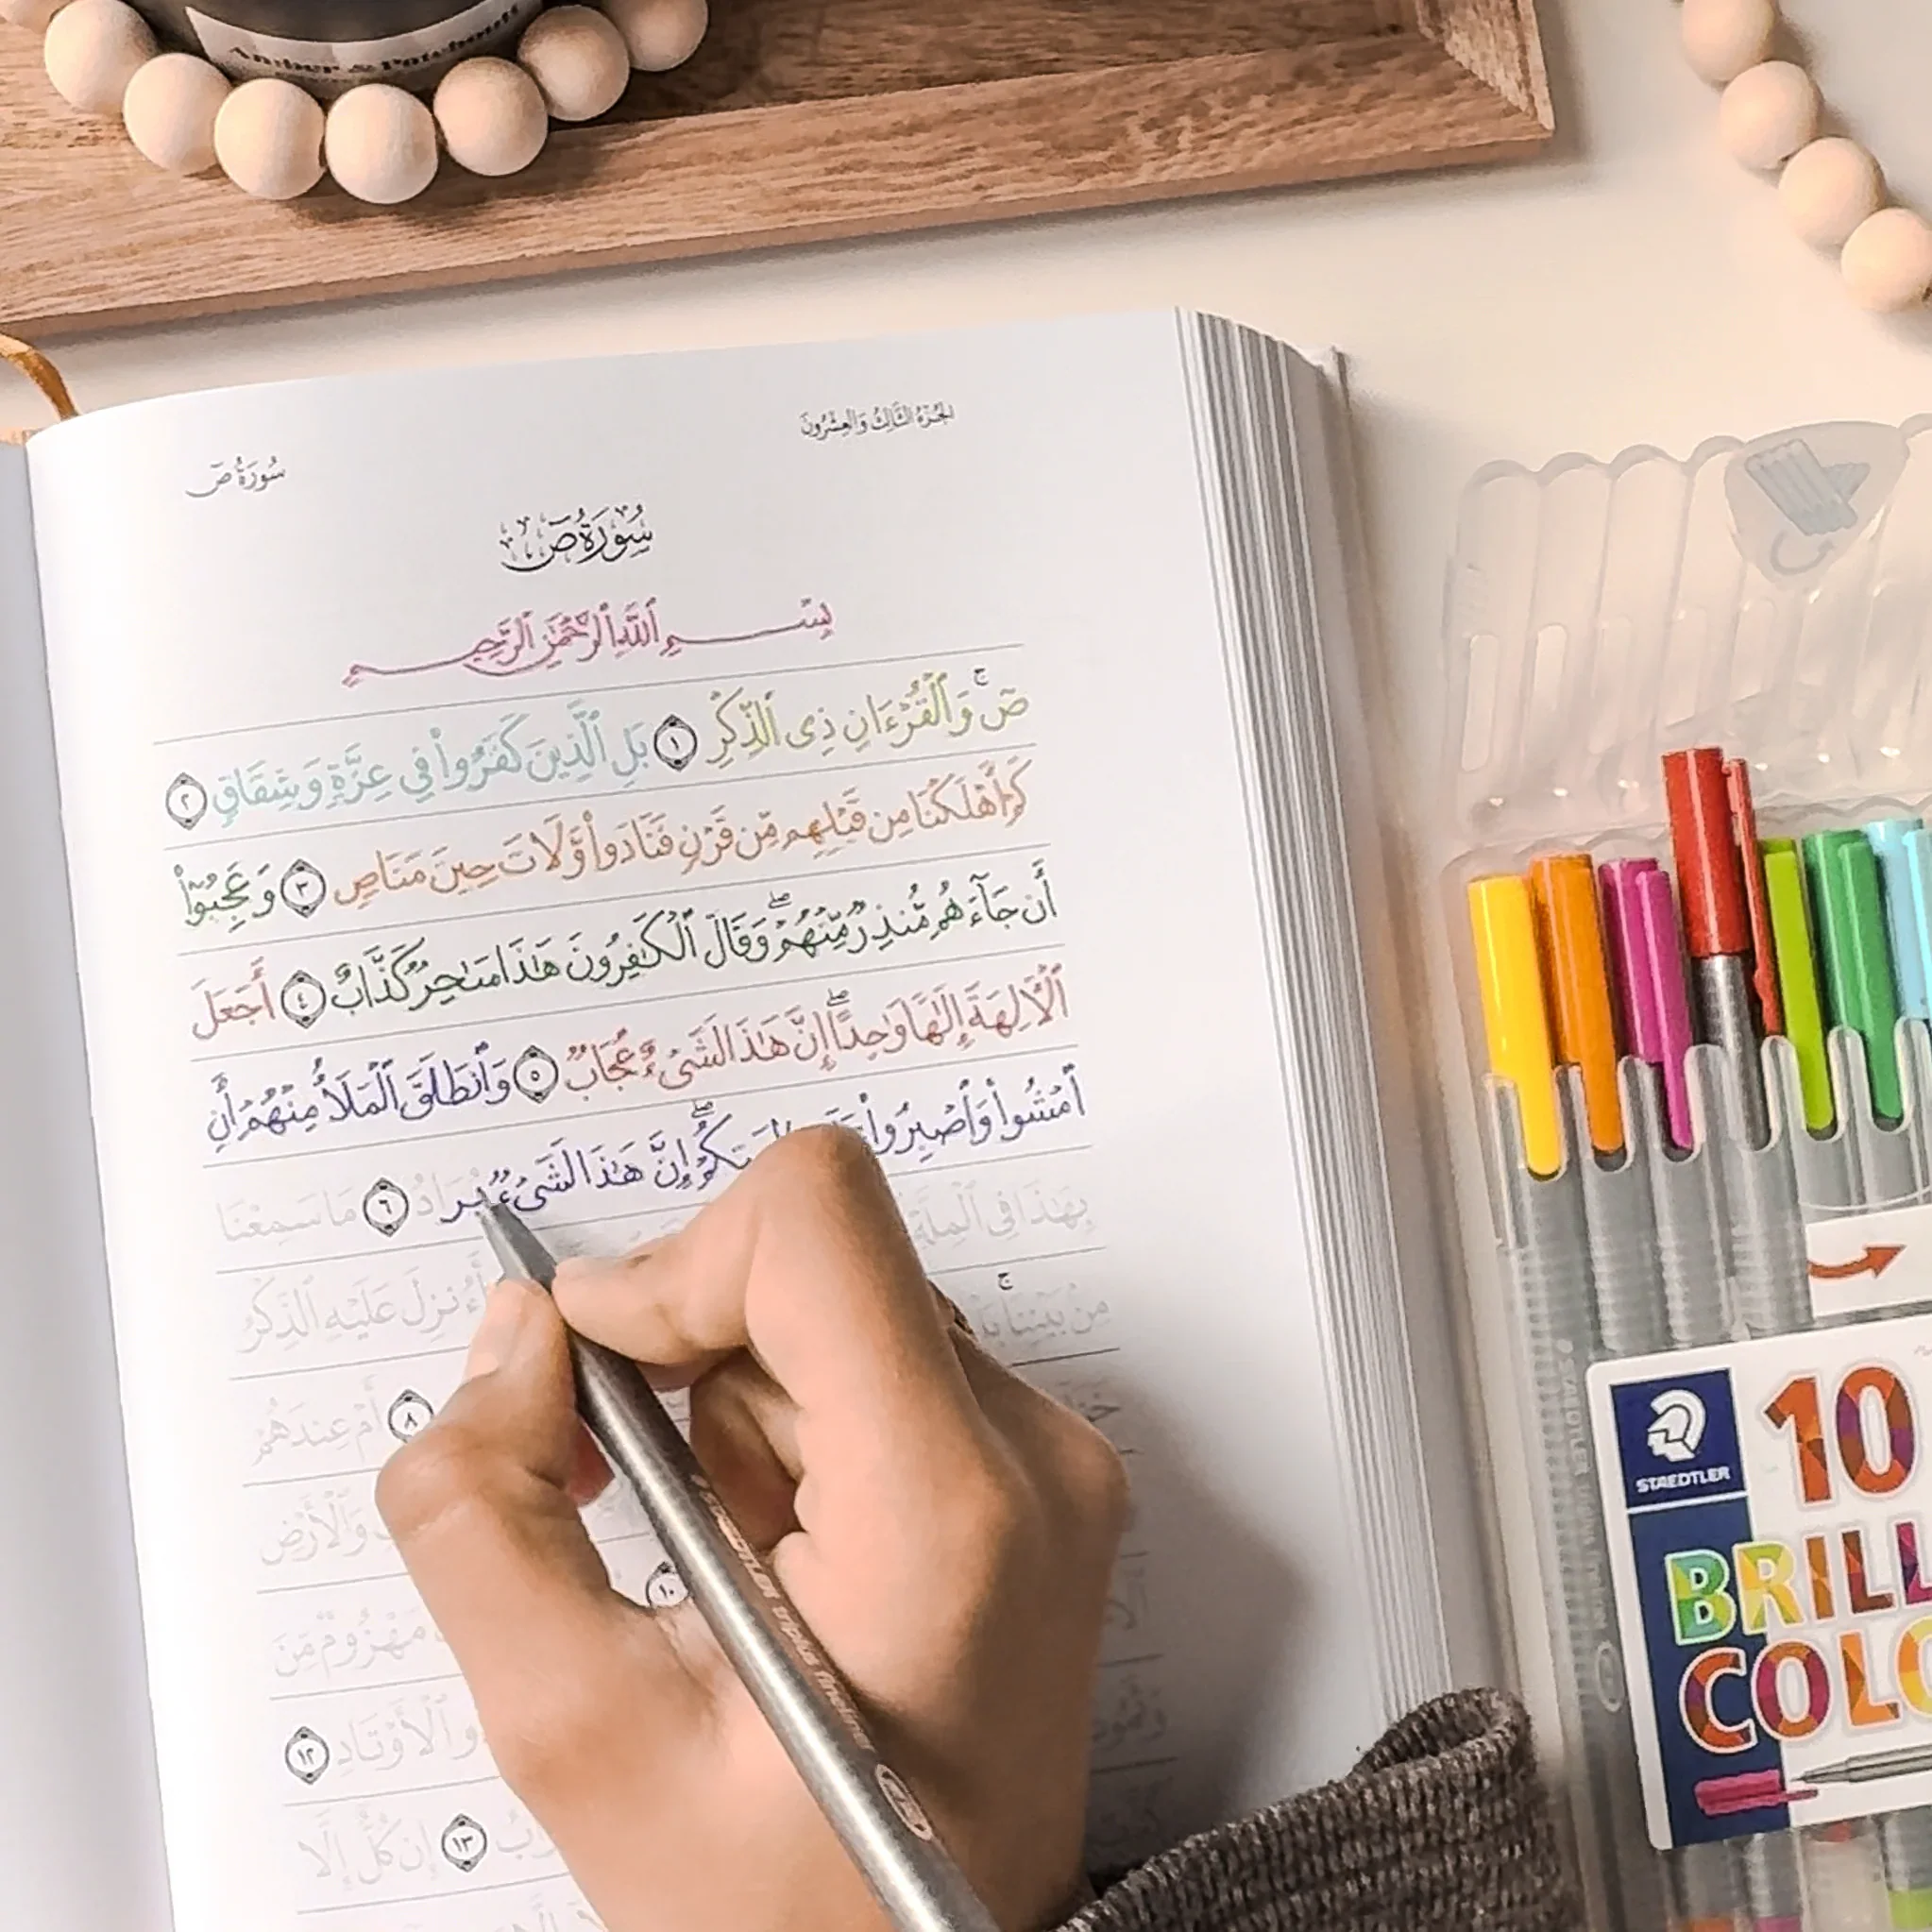 Amber & Patchouli
الجُزْءُ الثَّالِثُ وَالعِشْرُونَ
سُورَةُ صٓ
سُورَةُ صٓ
بِسْمِ ٱللَّهِ ٱلرَّحْمَٰنِ ٱلرَّحِيمِ
صٓ ۚ وَٱلْقُرْءَانِ ذِى ٱلذِّكْرِ ١ بَلِ ٱلَّذِينَ كَفَرُوا۟ فِى عِزَّةٍ وَشِقَاقٍ ٢
كَمْ أَهْلَكْنَا مِن قَبْلِهِم مِّن قَرْنٍ فَنَادَوا۟ وَّلَاتَ حِينَ مَنَاصٍ ٣ وَعَجِبُوٓا۟
أَن جَآءَهُم مُّنذِرٌ مِّنْهُمْ ۖ وَقَالَ ٱلْكَٰفِرُونَ هَٰذَا سَٰحِرٌ كَذَّابٌ ٤ أَجَعَلَ
ٱلْـَٔالِهَةَ إِلَٰهًا وَٰحِدًا ۖ إِنَّ هَٰذَا لَشَىْءٌ عُجَابٌ ٥ وَٱنطَلَقَ ٱلْمَلَأُ مِنْهُمْ أَنِ
ٱمْشُوا۟ وَٱصْبِرُوا۟ إِنَّ هَٰذَا لَشَىْءٌ يُرَادُ ٦ مَا سَمِعْنَا
بِهَٰذَا فِى ٱلْمِلَّةِ
مِنۢ بَيْنِنَا ۚ أَءُنزِلَ عَلَيْهِ ٱلذِّكْرُ
٨ أَمْ عِندَهُمْ
وَٱلْأَرْضِ
١٠ مَهْزُومٌ مِّنَ
ٱلْأَوْتَادِ ١٢
١٣ إِن كُلٌّ إِلَّا
STAEDTLER
10
BRILL
COLO
STAEDTLER triplus fineliner